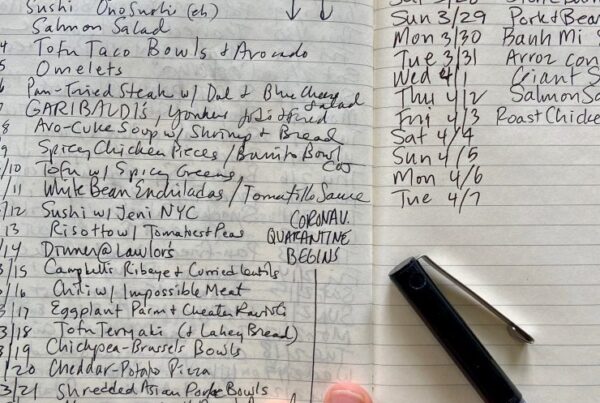 Sushi OnoSushi (eh)
Salmon Salad
4 Tofu Taco Bowls + Avocado
5 Omelets
Pan-Fried Steak w/ Dal + Blue Cheese Salad
7 GARIBALDI's, Yonkers
8 Avo-Cuke Soup w/ Shrimp + Bread
9 Spicy Chicken Pieces / Burrito Bowl
/10 Tofu w/ Spicy Greens,
/11 White Bean Enchiladas / Tomatillo Sauce
/12 Sushi w/ Jeni NYC
13 Risotto w/ Tomatoes + Peas
/14 Dinner@Lawlor's
CORONAV.
QUARANTINE
BEGINS
3/15 Campbell's Ribeye + Curried Lentils
/16 Chili w/ Impossible Meat
3/17 Eggplant Parm + Cheater Ravioli
3/18 Tofu Teryaki (+ Lahey Bread)
3/19 Chickpea-Brussels Bowls
/20 Cheddar-Potato Pizza
3/21 Shredded Asian Pork Bowls
Sat 3/28
Sun 3/29 Pork + Bean
Mon 3/30 Banh Mi S
Tue 3/31 Arroz con
Wed 4/1 Giant S
Thu 4/2 Salmon Sa
Fri 4/3 Roast Chicke
Sat 4/4
Sun 4/5
Mon 4/6
Tue 4/7